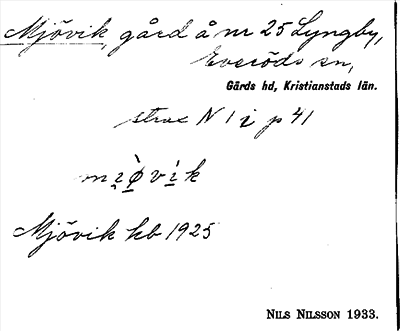 Mjövik, gård å nr 25 Lyngby,
Everöds sn,
Gärds hd, Kristianstads län.
strax N I i p 41
Mjövik kb 1925
Nils Nilsson 1933.